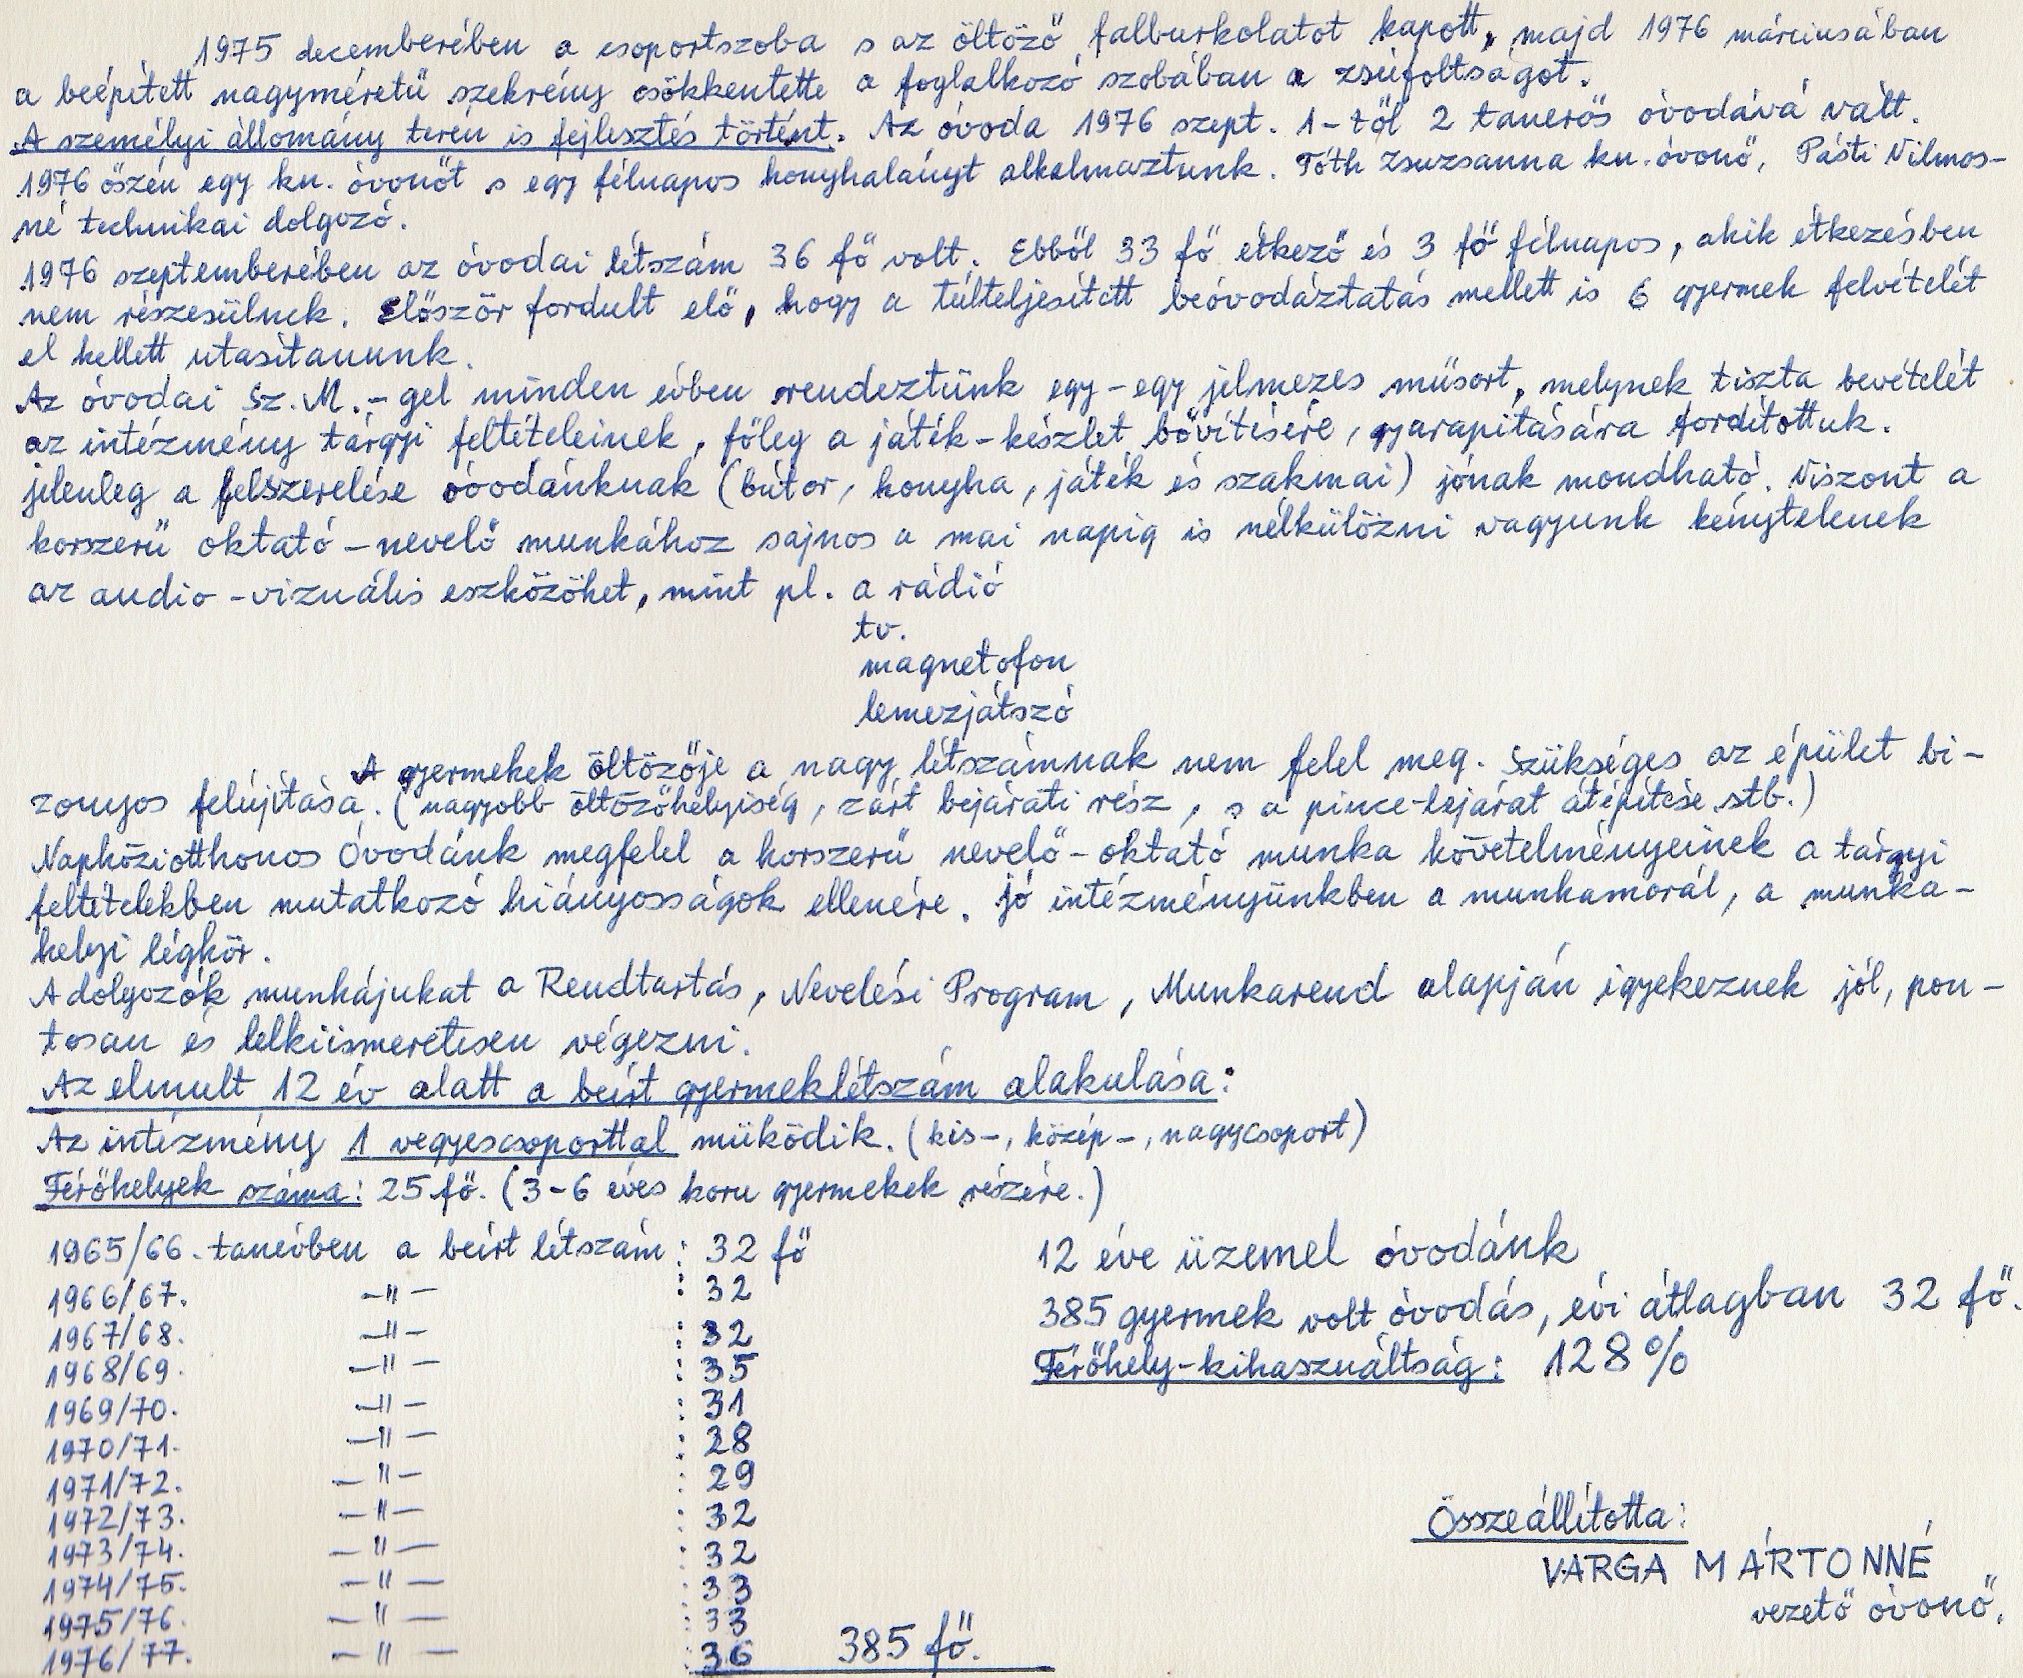 1975 decemberében a csoportszoba s az öltöző falburkolatot kapott, majd 1976 márciusában
a beépített nagyméretű szekrény csökkentette a foglalkozó szobában a zsúfoltságot.
A személyi állomány terén is fejlesztés történt. Az óvoda 1976 szept. 1-től 2 tanerős óvodává vált.
1976 őszén egy kn. óvonőt s egy félnapos konyhalányt alkalmaztunk. Tóth Zsuzsanna kn. óvonő, Pásti Vilmos-
né technikai dolgozó.
1976 szeptemberében az óvodai létszám 36 fő volt. Ebből 33 fő étkező és 3 fő félnapos, akik étkezésben
nem részesülnek. Először fordult elő, hogy a túlteljesített beóvodáztatás mellett is 6 gyermek felvételét
el kellett utasítanunk.
Az óvodai Sz.M.-gel minden évben rendeztünk egy-egy jelmezes műsort, melynek tiszta bevételét
az intézmény tárgyi feltételeinek, főleg a játék-készlet bővítésére, gyarapítására fordítottuk.
jelenleg a felszerelése óvodánknak (bútor, konyha, játék és szakmai) jónak mondható. Viszont a
korszerű oktató-nevelő munkához sajnos a mai napig is nélkülözni vagyunk kénytelenek
az audio-vizuális eszközöket, mint pl. a rádió
tv.
magnetofon
lemezjátszó
A gyermekek öltözője a nagy létszámnak nem felel meg. Szükséges az épület bi-
zonyos felújítása. (nagyobb öltözőhelyiség, zárt bejárati rész, s a pince-lejárat átépítése stb.)
Napköziotthonos Óvodánk megfelel a korszerű nevelő-oktató munka követelményeinek a tárgyi
feltételekben mutatkozó hiányosságok ellenére. Jó intézményünkben a munkamorál, a munka-
helyi légkör.
A dolgozók munkájukat a Rendtartás, Nevelési Program, Munkarend alapján igyekeznek jól, pon-
tosan és lelkiismeretesen végezni.
Az elmult 12 év alatt a beírt gyermeklétszám alakulása:
Az intézmény 1 vegyescsoporttal müködik. (kis-, közép-, nagycsoport)
Férőhelyek száma: 25 fő. (3-6 éves koru gyermekek részére.)
1965/66. tanévben a beírt létszám: 32 fő
1966/67. -"- : 32
1967/68. -"- : 32
1968/69. -"- : 35
1969/70. -"- : 31
1970/71. -"- : 28
1971/72. -"- : 29
1972/73. -"- : 32
1973/74. -"- : 32
1974/75. -"- : 33
1975/76. -"- : 33
1976/77. -"- : 36 385 fő.
12 éve üzemel óvodánk
385 gyermek volt óvodás, évi átlagban 32 fő.
Férőhely-kihasználtság: 128%
Összeállította:
VARGA MÁRTONNÉ
vezető óvonő.